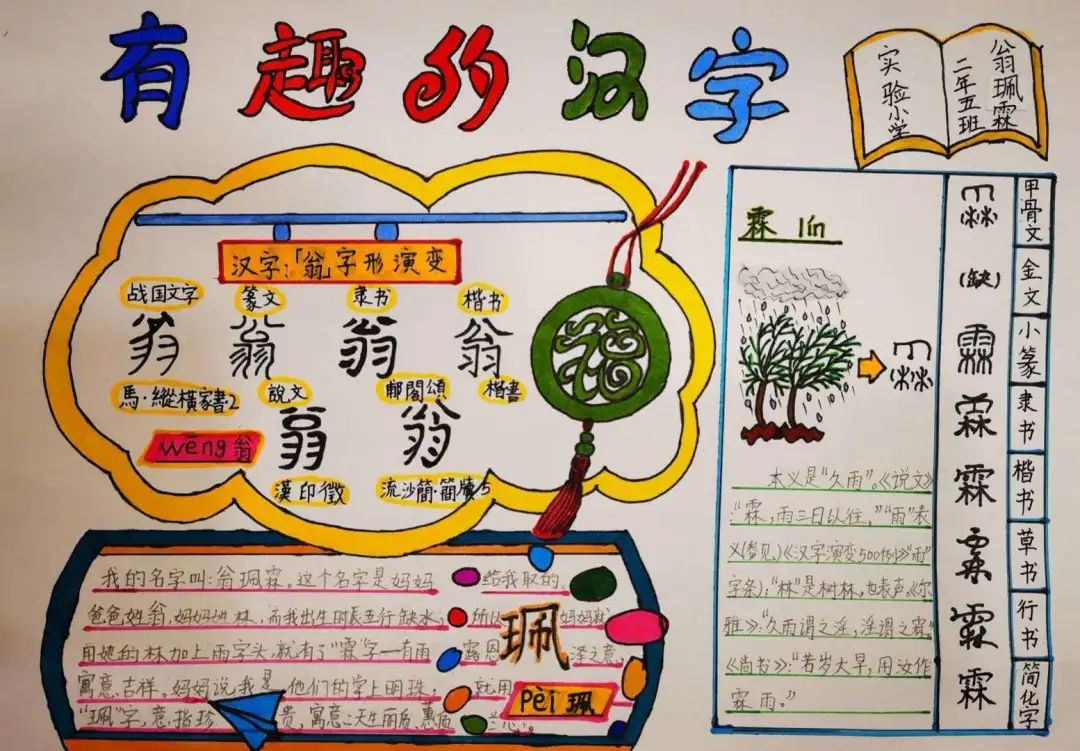 有趣的汉字
实验小学
二年五班
翁珮霖
汉字:「翁」字形演变
战国文字 篆文 隶书 楷书
翁 翁 翁 翁
馬·縱橫家書2 說文 郙閣頌 楷書
wēng 翁 翁 翁
漢印徵 流沙簡·簡牘5
福
我的名字叫:翁珮霖。这个名字是妈妈给我取的。
爸爸姓翁,妈妈姓林,而我出生时辰五行缺水,所以妈妈就
用她的林加上雨字头,就有了“霖”字一有雨露恩泽之意,
寓意吉祥。妈妈说我是他们的掌上明珠,就用
“珮”字,意指珍贵,寓意:天生丽质,蕙质兰心。
珮
pèi 珮
霖 lín
本义是“久雨”。《说文》
:“霖,雨三日以往。”“雨”表
义(参见)《汉字演变500例》“雨”
字条):“林”是树林,也表声。《尔
雅》:“久雨谓之淫,淫谓之霖”
《尚书》:“若岁大旱,用汝作
霖雨。”
霖 甲骨文
(缺) 金文
霖 小篆
霖 隶书
霖 楷书
霖 草书
霖 行书
霖 简化字